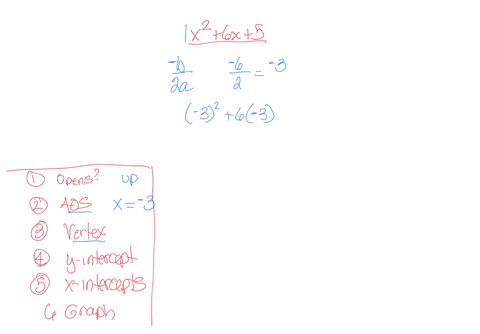 1x² + 6x + 5
-b/2a -6/2 = -3
(-3)² + 6(-3)
① Opens? up
② AOS x = -3
③ Vertex
④ y-intercept
⑤ x-intercepts
6 Graph